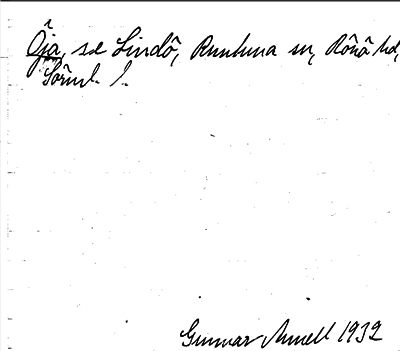 Öja, se Lindö, Runtuna sn, Rönö hd,
Södml. l.
Gunnar Linnell 1932